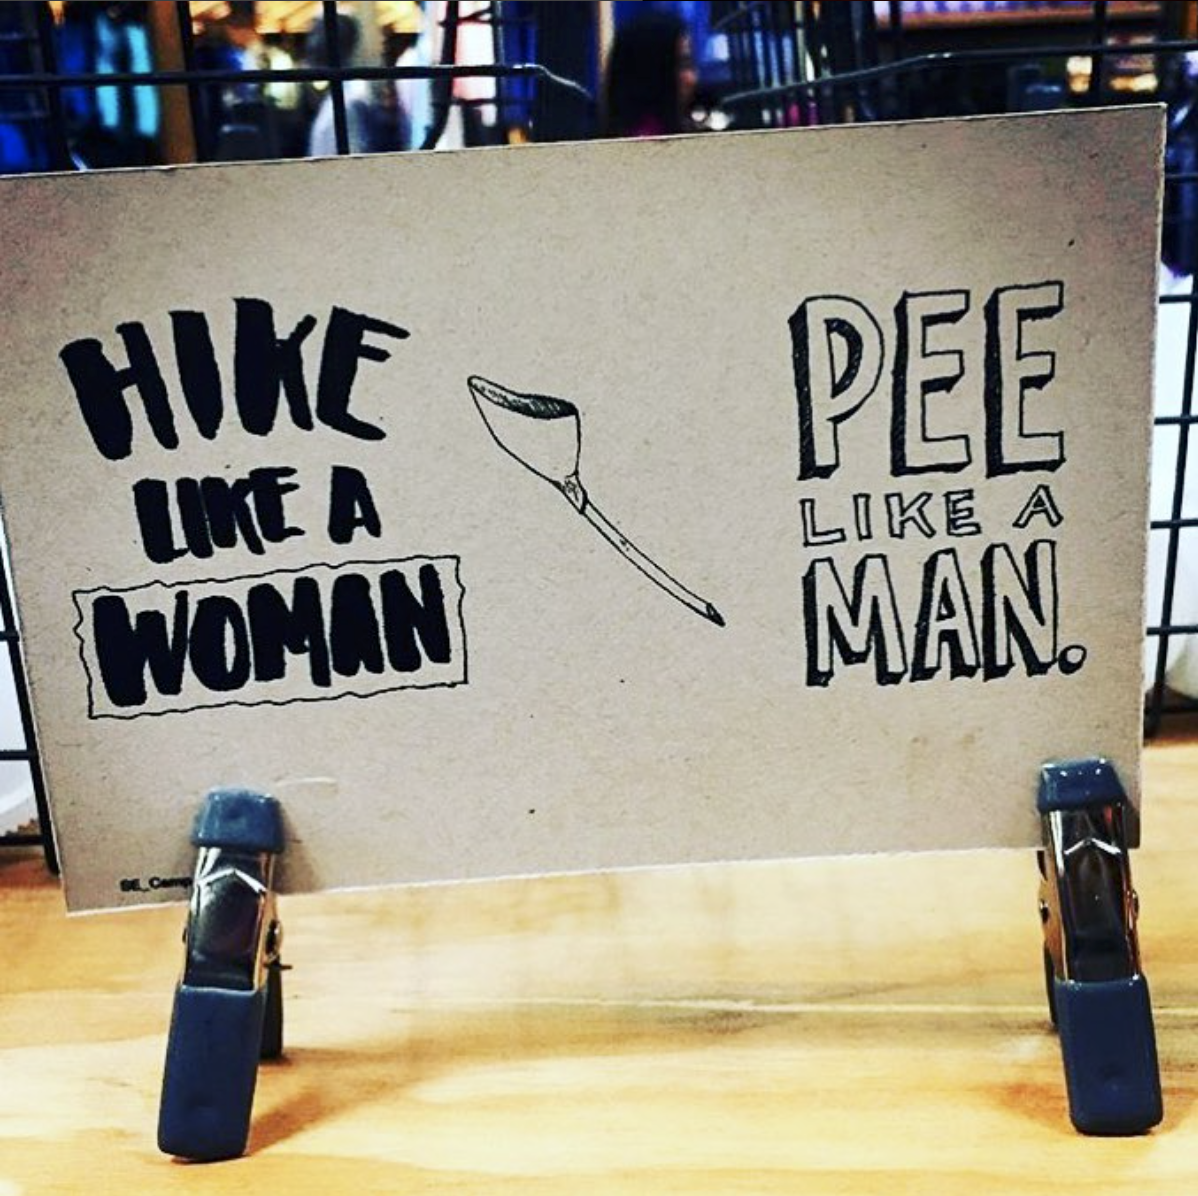 HIKE
LIKE A
WOMAN
PEE
LIKE A
MAN.